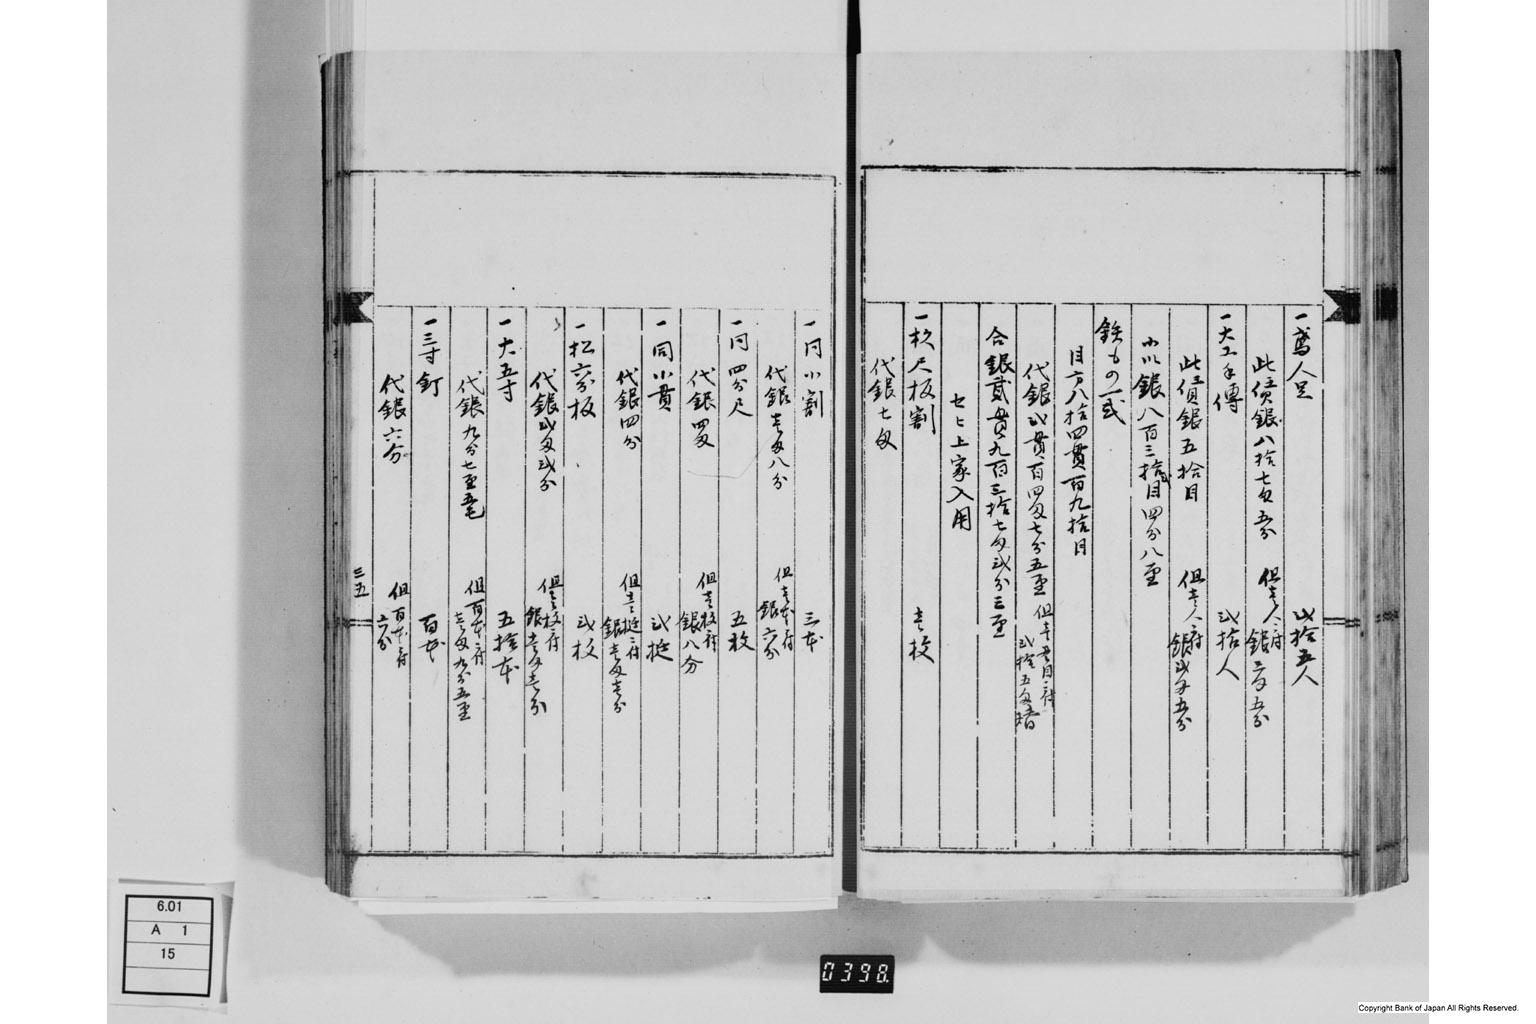 一鳶人足　弐拾五人
此賃銀八拾七匁五分　但壱人ニ付銀三匁五分
一大工手傳　弐拾人
此賃銀五拾目　但壱人ニ付銀弐匁五分
小以銀八百三拾目四分八厘
鉄もの一式
目方八拾四貫百九拾目
代銀弐貫百四匁七分五厘　但壱貫目ニ付弐拾五匁替
合銀貳貫九百三拾七匁弐分三厘
上家入用
一杉尺板割　壱枚
代銀七匁
一同小割　三本
代銀壱匁八分　但壱本ニ付銀六分
一同四分尺　五枚
代銀四匁　但壱枚ニ付銀八分
一同小貫　弐挺
代銀四分　但壱挺ニ付銀壱匁壱分
一松六分板　弐枚
代銀弐匁弐分　但壱枚ニ付銀壱匁壱分
一大五寸　五拾本
代銀九分七厘五毛　但百本ニ付壱匁九分五厘
一三寸釘　百本
代銀六分　但百本ニ付六分
三五
6.01
A 1
15
0398
Copyright Bank of Japan All Rights Reserved.